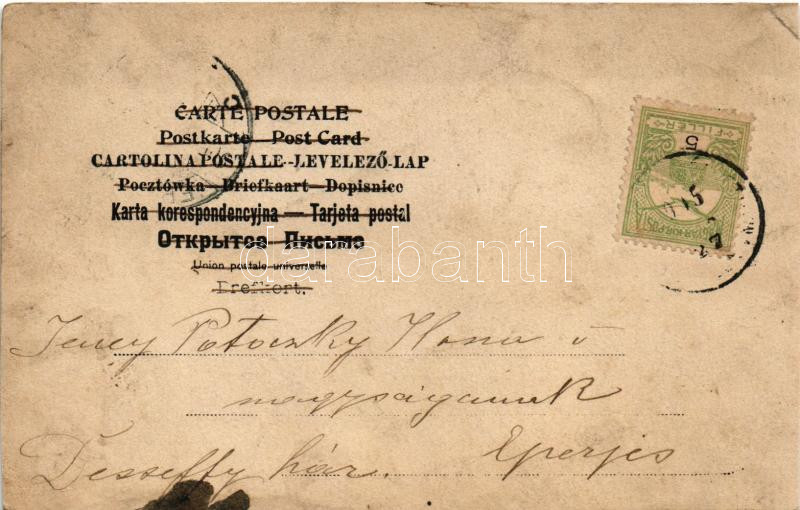 CARTE POSTALE
Postkarte Post Card
CARTOLINA POSTALE--LEVELEZŐ-LAP
Pocztówka--Briefkaart--Dopisnice
Karta korespondencyjna — Tarjeta postal
Открытое Письмо
Union postale universelle
Brefkort.
darabanth
FILLÉR
5
Potoczky Ilona ő
nagyságának
Desseffy ház. Eperjes